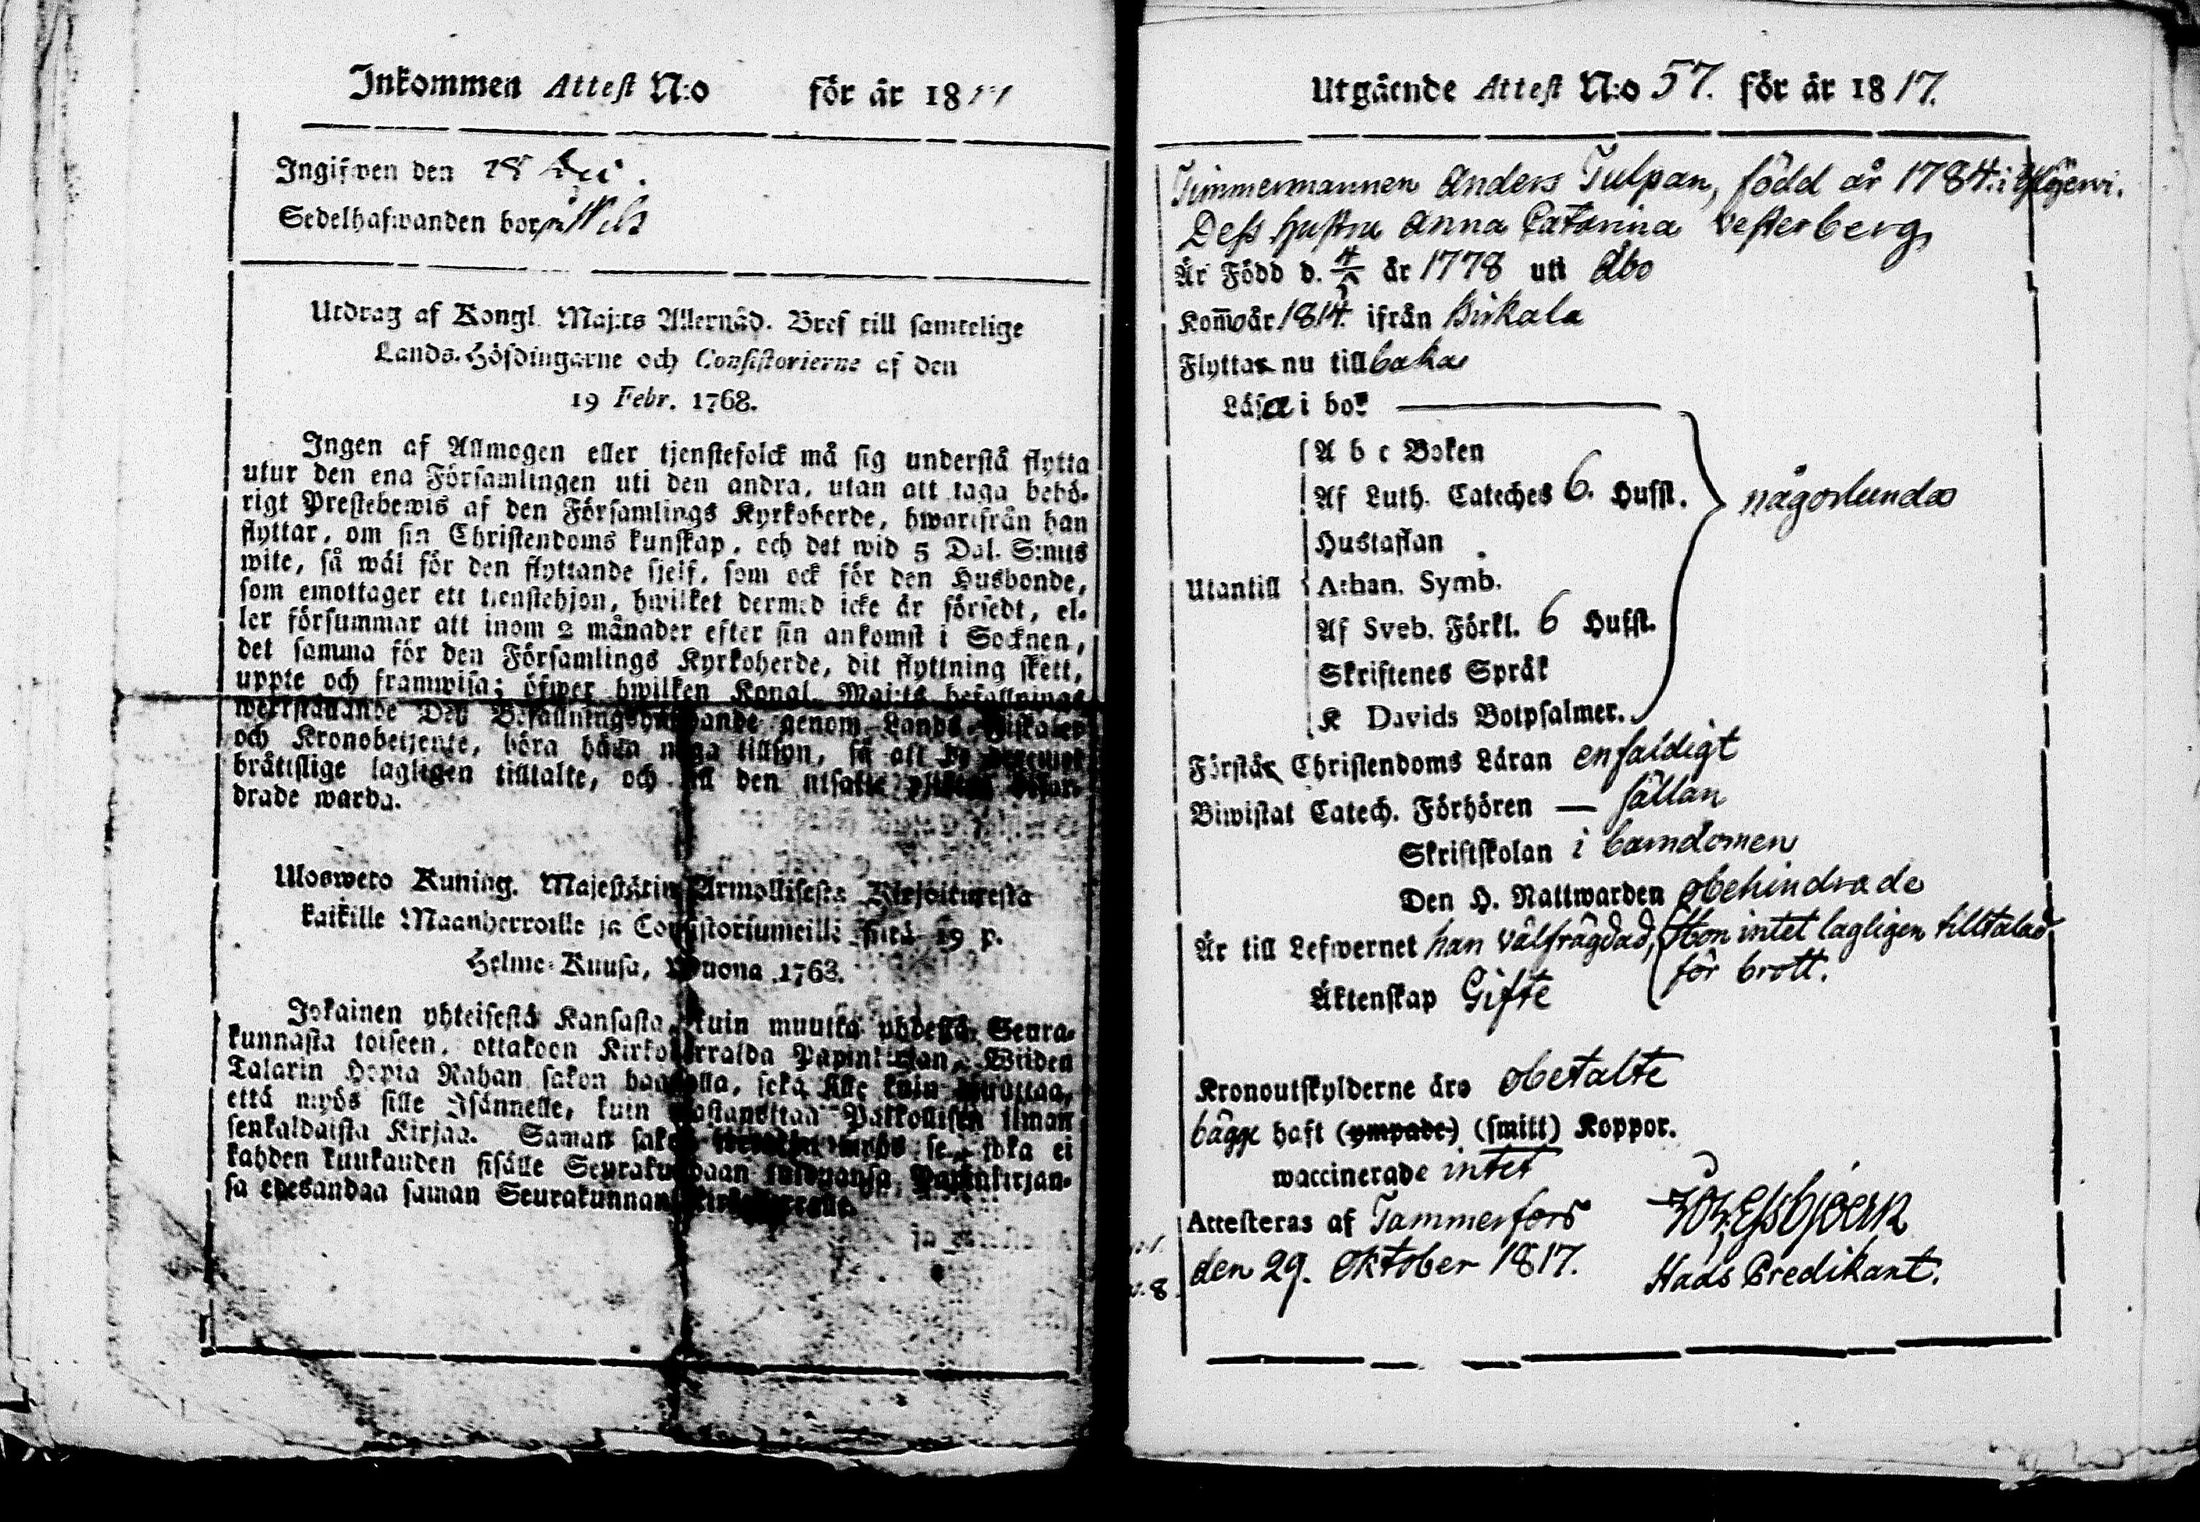 Inkommen Attest N:o för år 18
Ingifwen den 28
Sedelhafwanden bor
Utdrag af Kongl. Maj:ts Allernåd. Bref till samtelige
Lands-Höfdingarne och Consistorierne af den
19 Febr. 1768.
Ingen af Allmogen eller tjenstefolck må sig understå flytta
utur den ena Församlingen uti den andra, utan att taga behö-
rigt Prestebewis af den Församlings Kyrkoherde, hwarifrån han
flyttar, om sin Christendoms kunskap, och det wid 5 Dal. S:mts
wite, så wäl för den flyttande sjelf, som ock för den Husbonde,
som emottager ett tienstehjon, hwilket dermed icke är försedt, el-
ler försummar att inom 2 månader efter sin ankomst i Socknen,
det samma för den Församlings Kyrkoherde, dit flyttning skett,
uppte och framwisa; öfwer hwilken Kongl. Maj:ts befallnings
werkställande Dess Befallningshafwande genom Lands-Fiskaler
och Kronobetjente, böra hafwa noga tillsyn, så att de
bråttslige lagligen tilltalte, och till den utsatte
drade warda.
Ulosweto Kuning. Majestätin Armollisesta Kirjoituxesta
kaikille Maanherroille ja Consistoriumeille siitä 19 p.
Helme-Kuusa, Wuona 1768.
Jokainen yhteisestä Kansasta, kuin muutta yhdestä Seura-
kunnasta toiseen, ottakoon Kirkoherralda Papinkirjan, Wiiden
Talarin Hopia Rahan sakon haastolla, sekä sille kuin muuttaa,
että myös sille Isännelle, kuin wastanottaa Palkollisen ilman
senkaldaista Kirjaa. Saman sakon myös se, joka ei
kahden kuukauden sisälle Seurakundaan tulduansa, Papinkirjan-
sa edesandaa saman Seurakunnan Kirkoherralle.
Utgående Attest N:o 57. för år 1817.
Timmermannen Anders Tulpan, född år 1784. i
Dess hustru Anna Catarina Vesterberg,
Är Född d. 4/5 år 1778 uti Åbo
Kom̄o år 1814. ifrån Birkala
Flyttar nu tillbaka
Läsa i bok
A b c Boken
Af Luth. Cateches 6. Hufst. någorlunda
Hustaflan
Utantill Athan. Symb.
Af Sveb. Förkl. 6 Hufst.
Skriftenes Språk
K Davids Botpsalmer.
Förstår Christendoms Läran enfaldigt
Biwistat Catech. Förhören — sällan
Skriftskolan i barndomen
Den H. Nattwarden obehindrade
Är till Lefwernet han välfrägdad, Hon intet lagligen tilltalad
för brott.
Äktenskap Gifte
Kronoutskylderne äro obetalte
bägge haft (ympade) (smitt) Koppor.
waccinerade intet
Attesteras af Tammerfors
den 29. Oktober 1817. Hads Predikant.